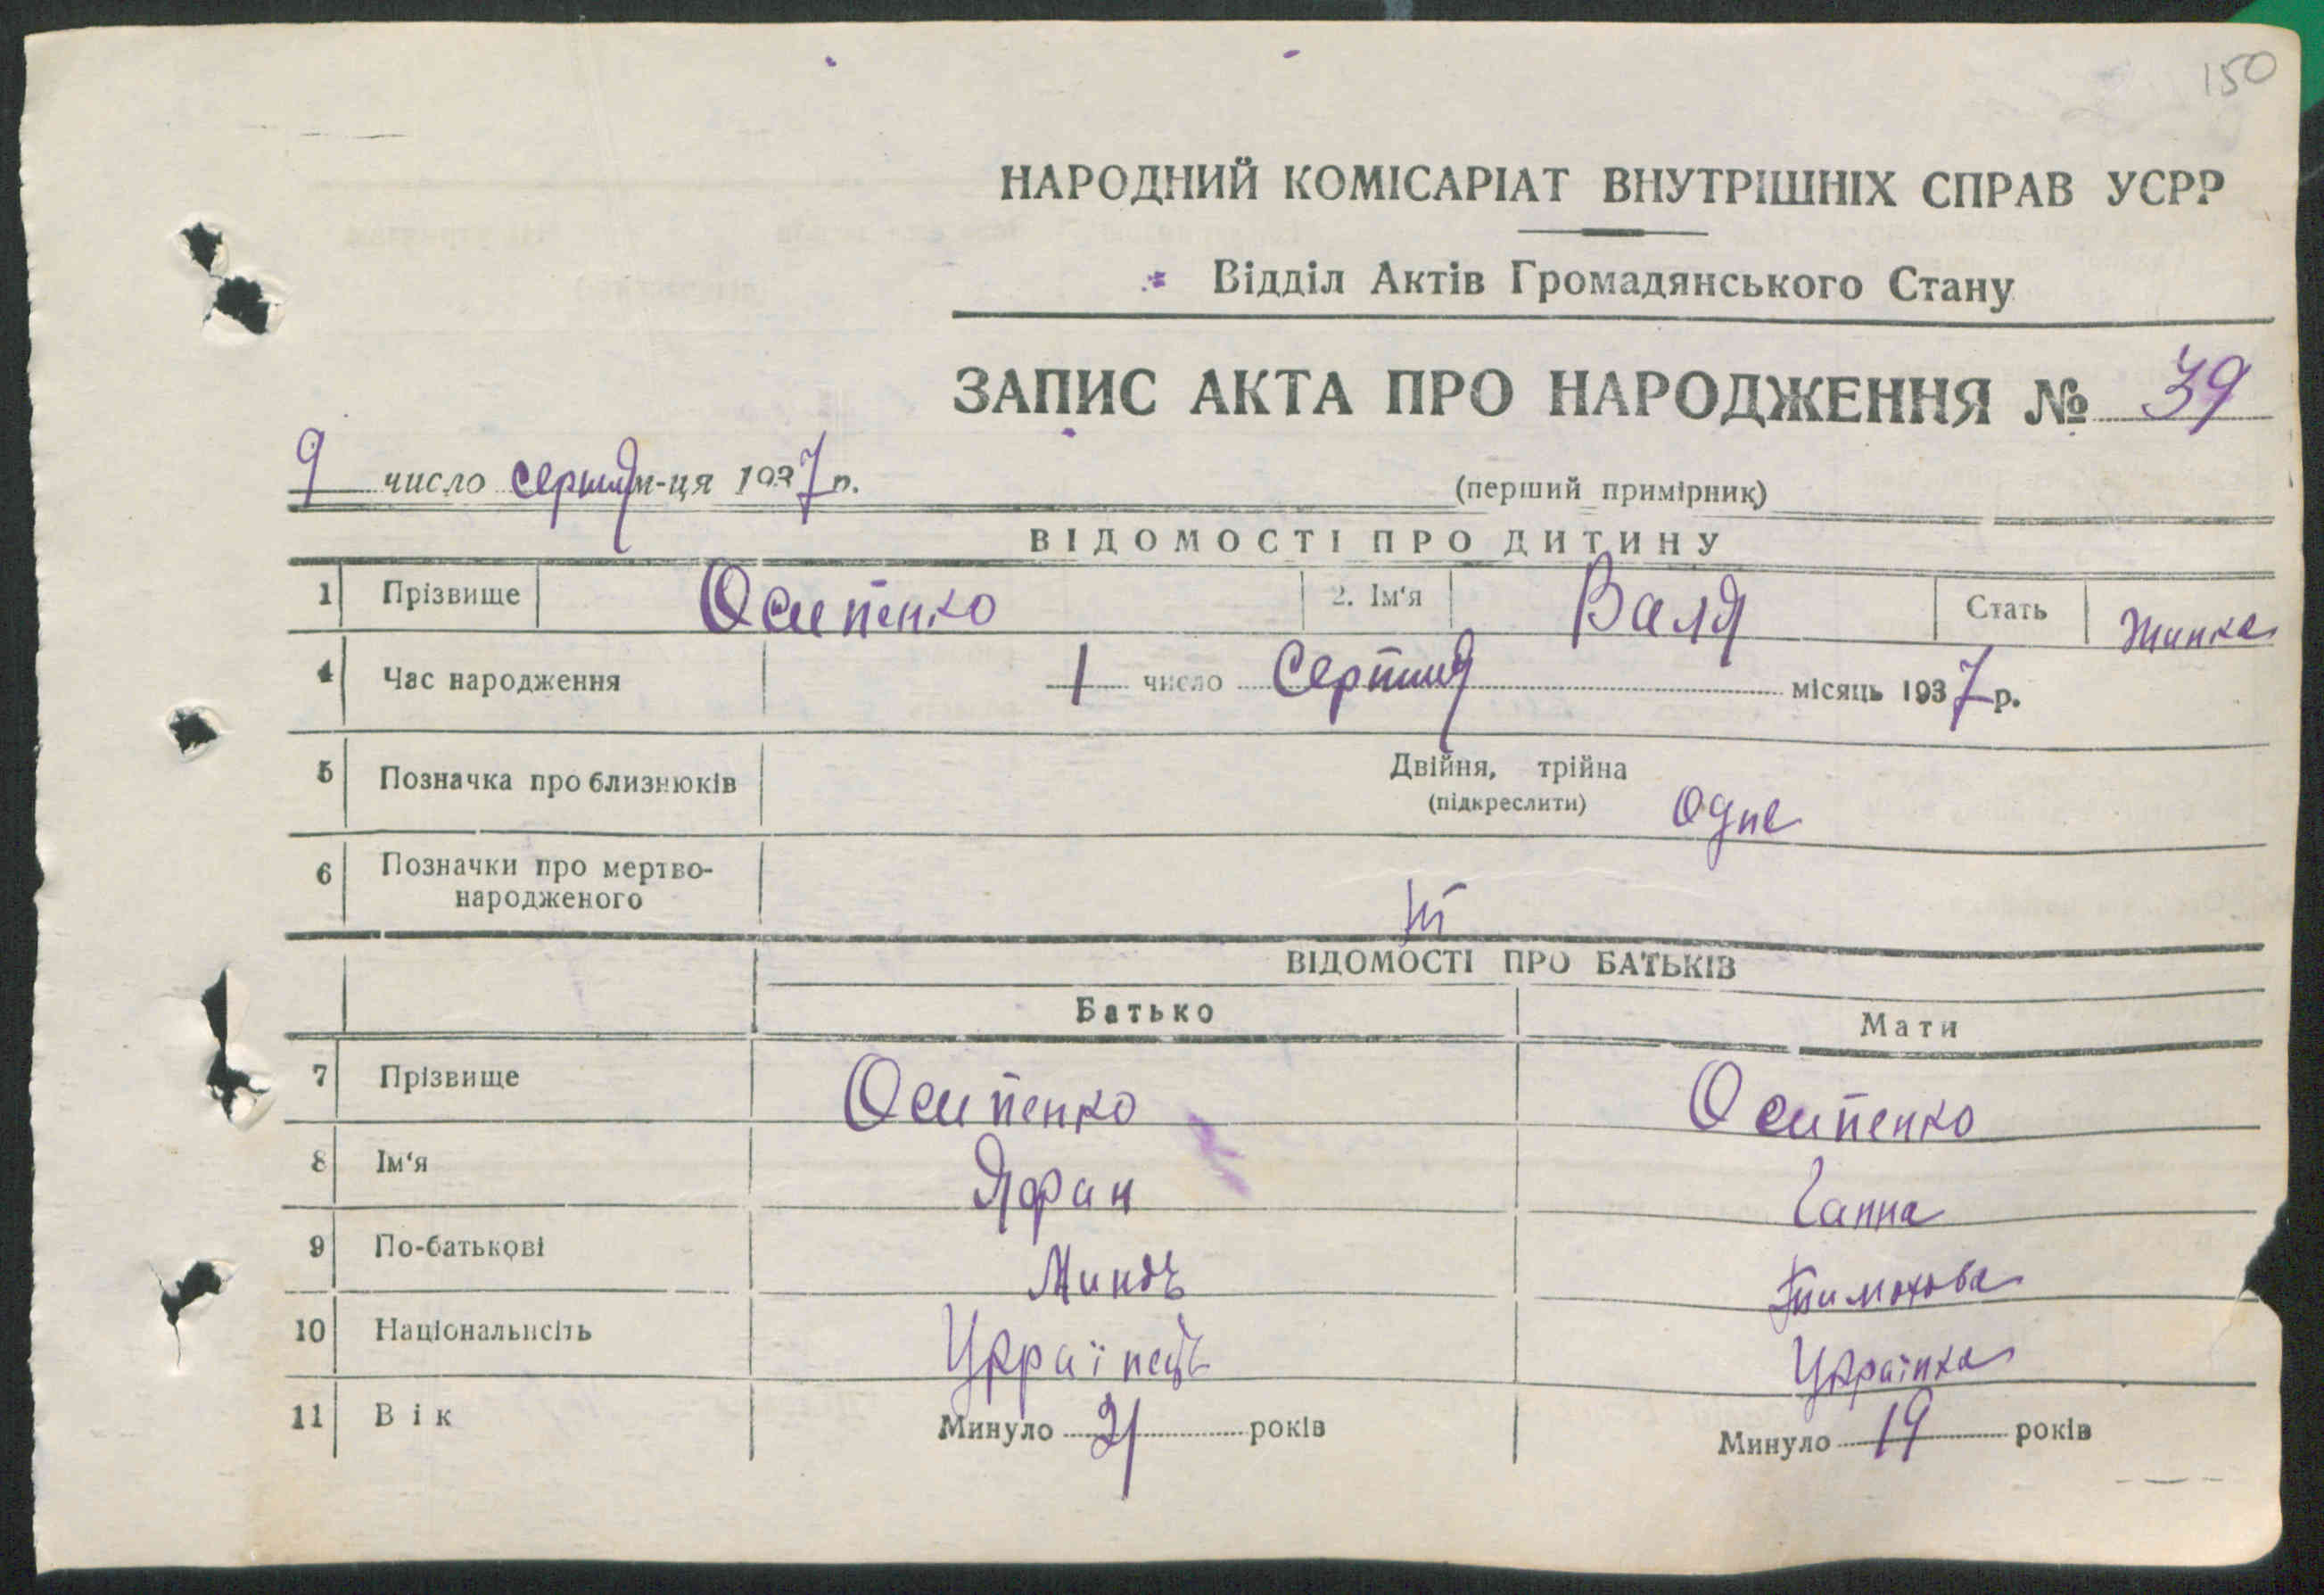 150
НАРОДНИЙ КОМІСАРІАТ ВНУТРІШНІХ СПРАВ УСРР
Відділ Актів Громадянського Стану
ЗАПИС АКТА ПРО НАРОДЖЕННЯ № 39
9 число серпня м-ця 1937 р.
(перший примірник)
ВІДОМОСТІ ПРО ДИТИНУ
1 Прізвище Осипенко 2. Ім'я Валя Стать жинка
4 Час народження 1 число Серпня місяць 1937 р.
5 Позначка про близнюків Двійня, трійна
(підкреслити) Одне
6 Позначки про мертво-
народженого Ні
ВІДОМОСТІ ПРО БАТЬКІВ
Батько Мати
7 Прізвище Осипенко Осипенко
8 Ім'я Ганна
9 По-батькові
10 Національність Українець Українка
11 Вік Минуло 21 років Минуло 19 років